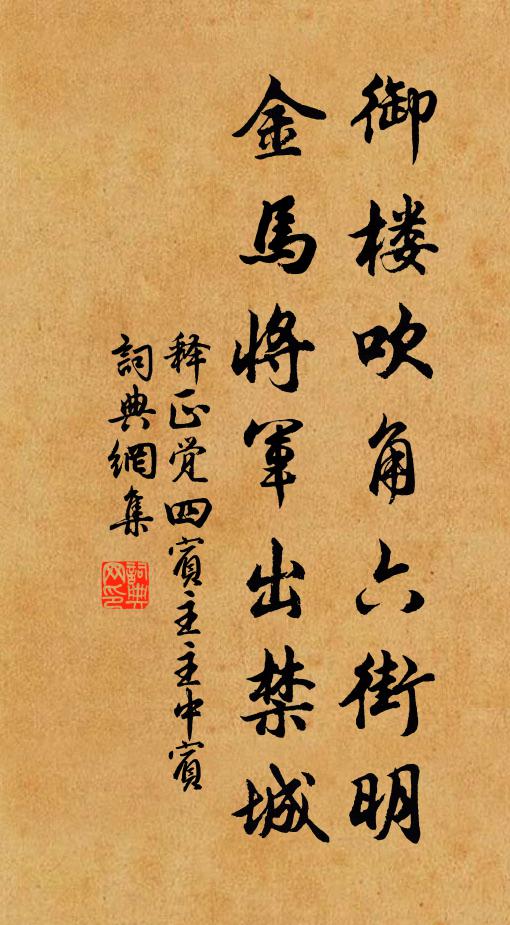 御楼吹角六街明
金馬将軍出禁城
释正觉四賓主主中賓
詞典網集
詞典网印